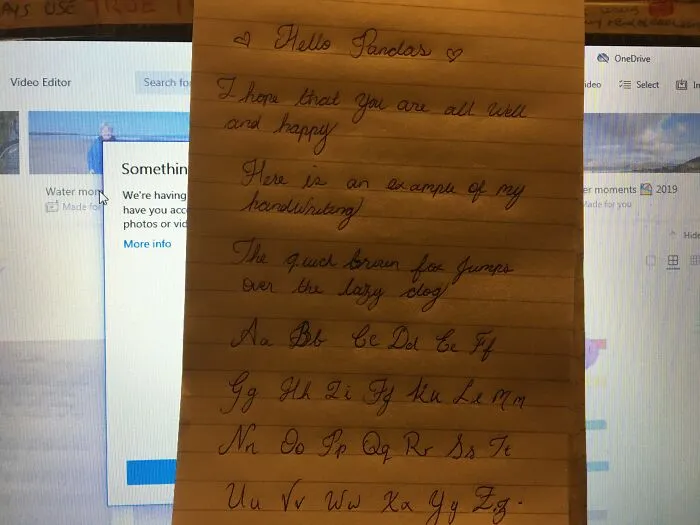 AYS USE TRUE
OneDrive
Video Editor
Search fo
ideo
Select
In
♡ Hello Pandas ♡
I hope that you are all well
and happy
Here is an example of my
handwriting
The quick brown fox jumps
over the lazy dog
Aa Bb Cc Dd Ee Ff
Gg Hh Ii Jj Kk Ll Mm
Nn Oo Pp Qq Rr Ss Tt
Uu Vv Ww Xx Yy Zz.
Somethin
We're having
have you acc
photos or vid
More info
Water mom
Made for
er moments 2019
Made for you
Hide